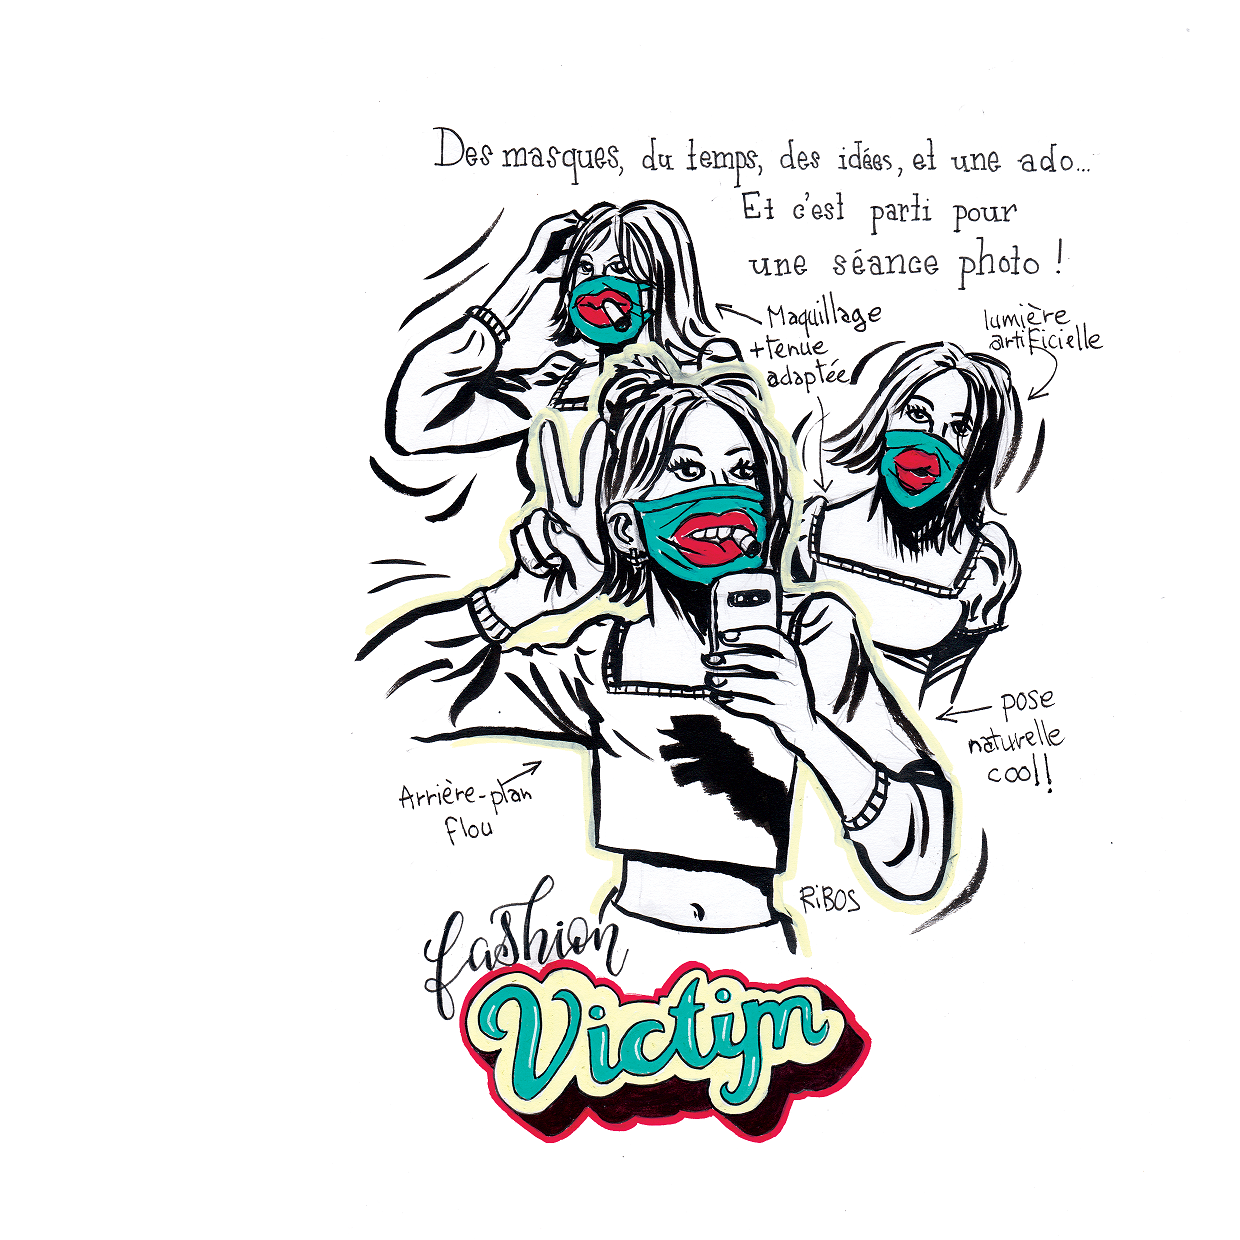 Des masques, du temps, des idées, et une ado...
Et c'est parti pour
une séance photo !
Maquillage
+tenue
adaptée
lumière
artificielle
pose
naturelle
cool!
Arrière-plan
flou
RiBOS
fashion
Victym